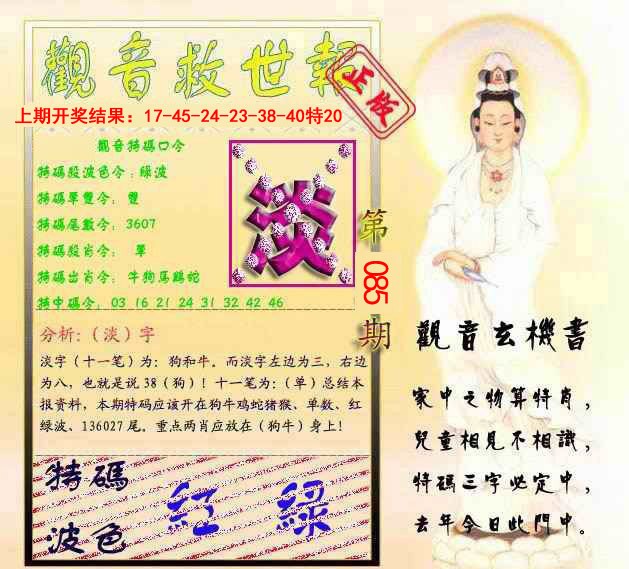 觀音救世報
正版
上期开奖结果：17-45-24-23-38-40特20
觀音特碼口令
特碼段波色令：綠波
特碼單雙令：雙
特碼尾數令：3607
特碼段肖令：單
特碼出肖令：牛狗馬鷄蛇
特中碼令：03 16 21 24 31 32 42 46
淡
第
085
期
分析：（淡）字
淡字（十一笔）为：狗和牛。而淡字左边为三，右边
为八，也就是说38（狗）！十一笔为：（单）总结本
报资料，本期特码应该开在狗牛鸡蛇猪猴、单数、红
绿波、136027尾。重点两肖应放在（狗牛）身上！
特碼
波色
紅 綠
觀音玄機書
家中之物算特肖，
兒童相見不相識，
特碼三字必定中，
去年今日此門中。